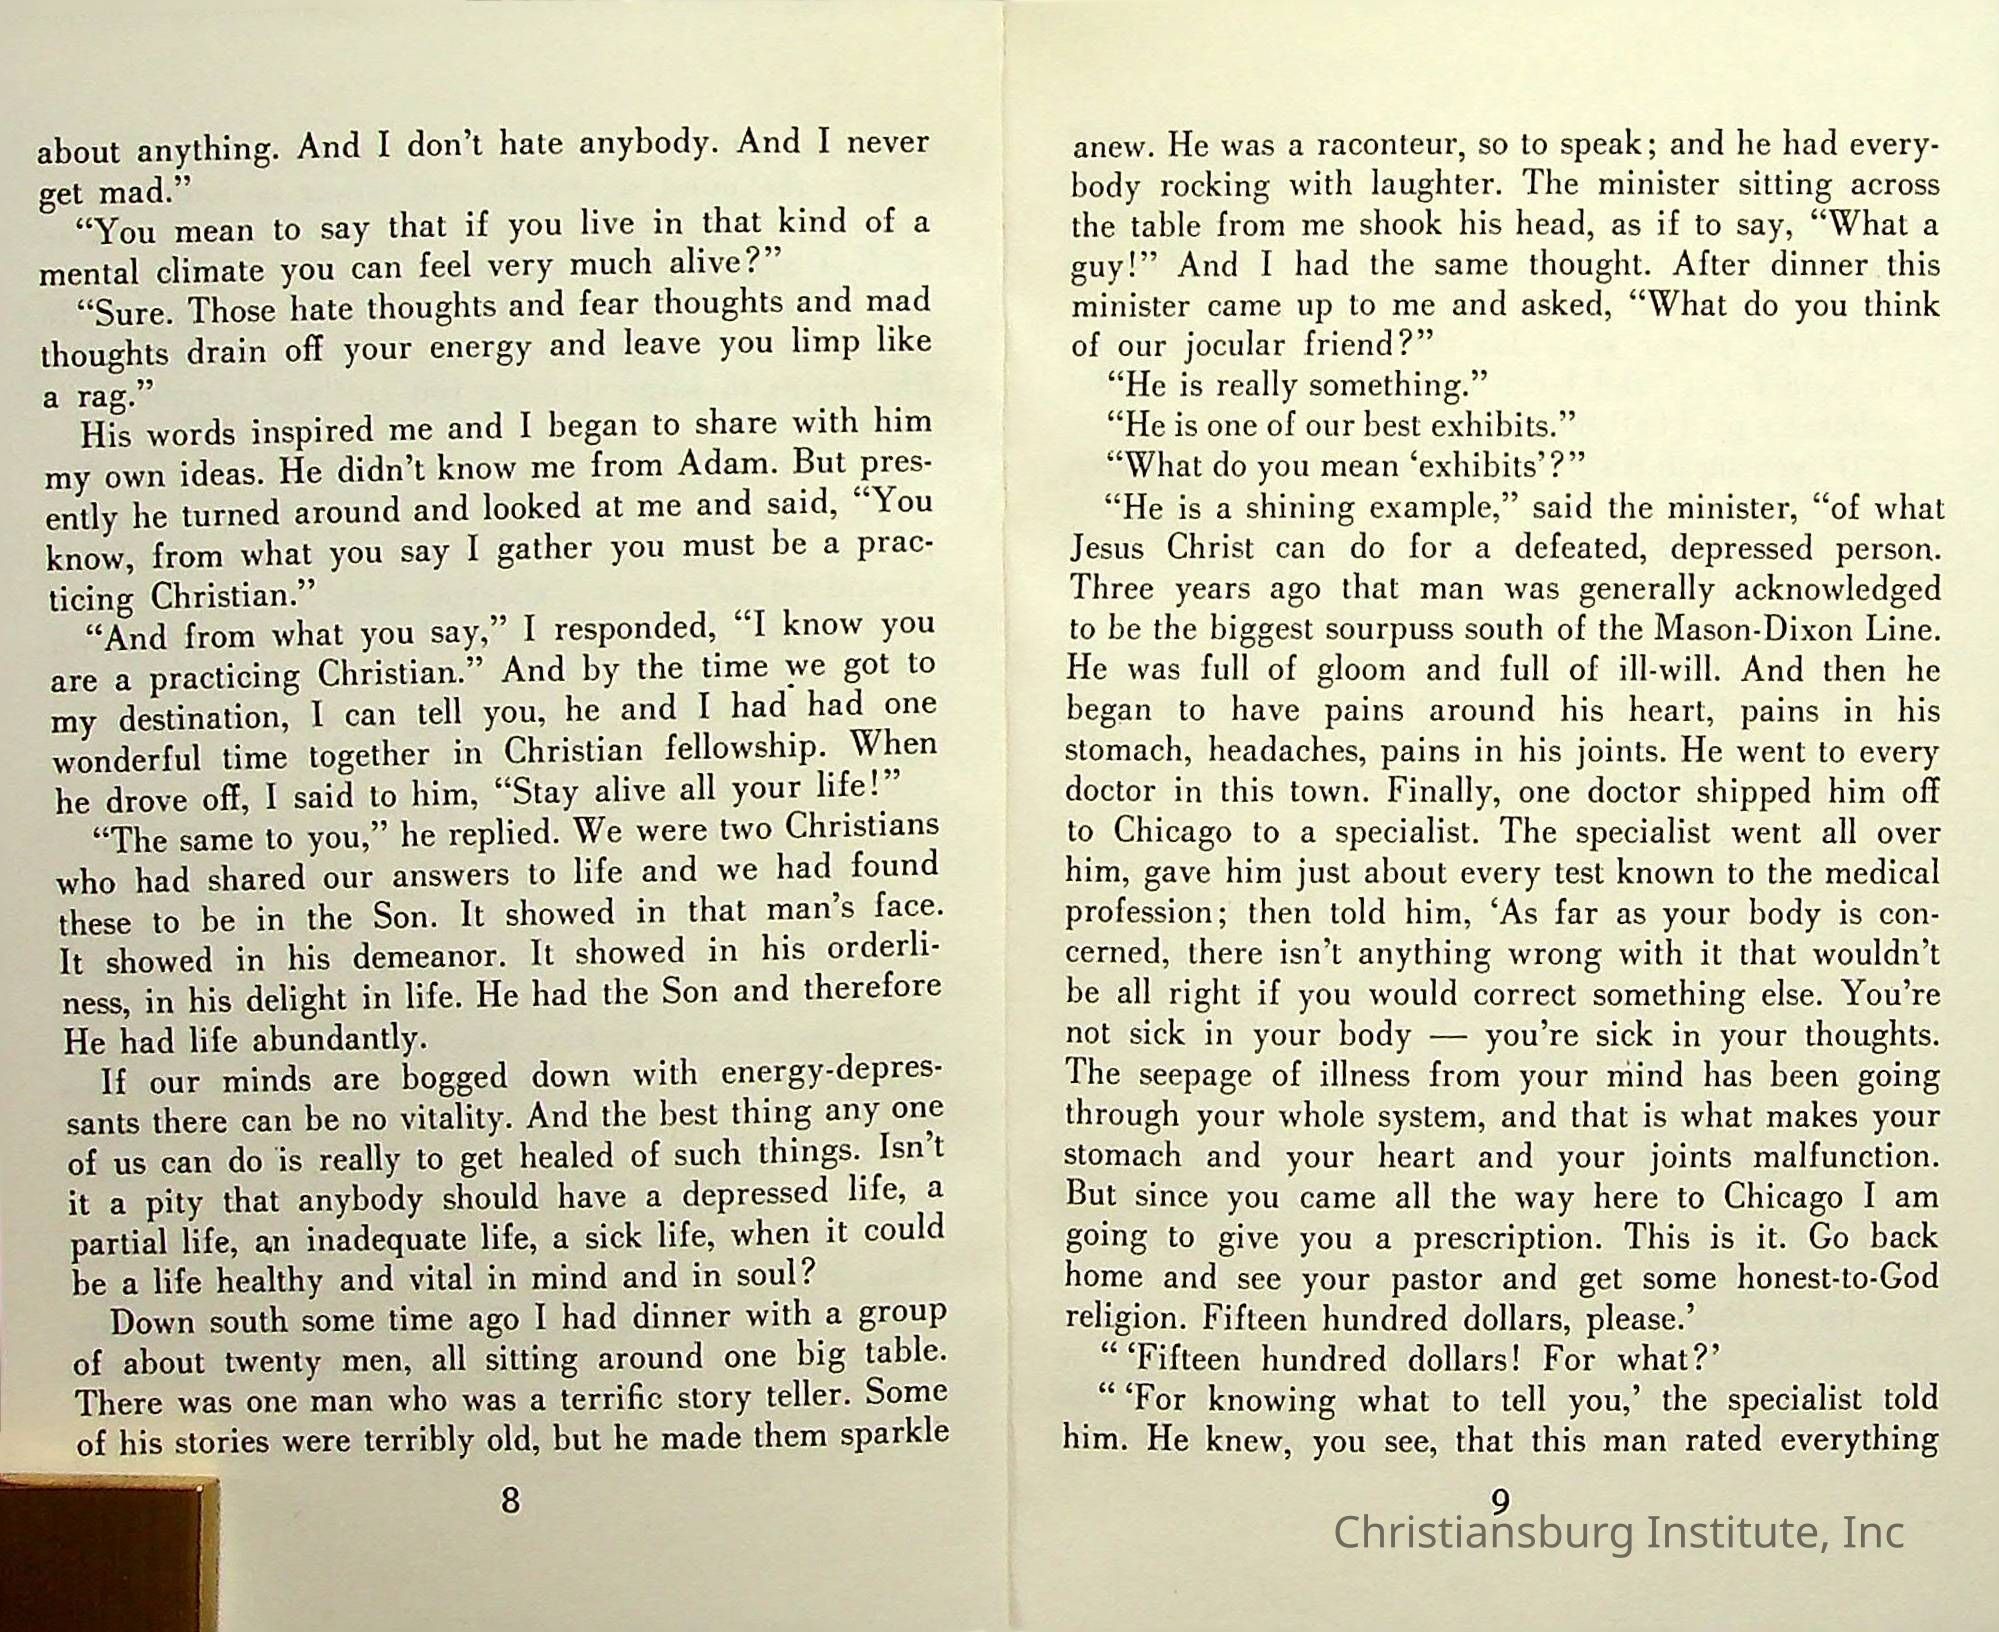 about anything. And I don't hate anybody. And I never
get mad.”
“You mean to say that if you live in that kind of a
mental climate you can feel very much alive?”
“Sure. Those hate thoughts and fear thoughts and mad
thoughts drain off your energy and leave you limp like
a rag.”
His words inspired me and I began to share with him
my own ideas. He didn't know me from Adam. But pres-
ently he turned around and looked at me and said, “You
know, from what you say I gather you must be a prac-
ticing Christian.”
“And from what you say,” I responded, “I know you
are a practicing Christian.” And by the time we got to
my destination, I can tell you, he and I had had one
wonderful time together in Christian fellowship. When
he drove off, I said to him, “Stay alive all your life!”
“The same to you,” he replied. We were two Christians
who had shared our answers to life and we had found
these to be in the Son. It showed in that man's face.
It showed in his demeanor. It showed in his orderli-
ness, in his delight in life. He had the Son and therefore
He had life abundantly.
If our minds are bogged down with energy-depres-
sants there can be no vitality. And the best thing any one
of us can do is really to get healed of such things. Isn't
it a pity that anybody should have a depressed life, a
partial life, an inadequate life, a sick life, when it could
be a life healthy and vital in mind and in soul?
Down south some time ago I had dinner with a group
of about twenty men, all sitting around one big table.
There was one man who was a terrific story teller. Some
of his stories were terribly old, but he made them sparkle
8
anew. He was a raconteur, so to speak; and he had every-
body rocking with laughter. The minister sitting across
the table from me shook his head, as if to say, “What a
guy!” And I had the same thought. After dinner this
minister came up to me and asked, “What do you think
of our jocular friend?”
“He is really something.”
“He is one of our best exhibits.”
“What do you mean ‘exhibits’?”
“He is a shining example,” said the minister, “of what
Jesus Christ can do for a defeated, depressed person.
Three years ago that man was generally acknowledged
to be the biggest sourpuss south of the Mason-Dixon Line.
He was full of gloom and full of ill-will. And then he
began to have pains around his heart, pains in his
stomach, headaches, pains in his joints. He went to every
doctor in this town. Finally, one doctor shipped him off
to Chicago to a specialist. The specialist went all over
him, gave him just about every test known to the medical
profession; then told him, ‘As far as your body is con-
cerned, there isn't anything wrong with it that wouldn't
be all right if you would correct something else. You're
not sick in your body — you're sick in your thoughts.
The seepage of illness from your mind has been going
through your whole system, and that is what makes your
stomach and your heart and your joints malfunction.
But since you came all the way here to Chicago I am
going to give you a prescription. This is it. Go back
home and see your pastor and get some honest-to-God
religion. Fifteen hundred dollars, please.’
“ ‘Fifteen hundred dollars! For what?’
“ ‘For knowing what to tell you,’ the specialist told
him. He knew, you see, that this man rated everything
9
Christiansburg Institute, Inc